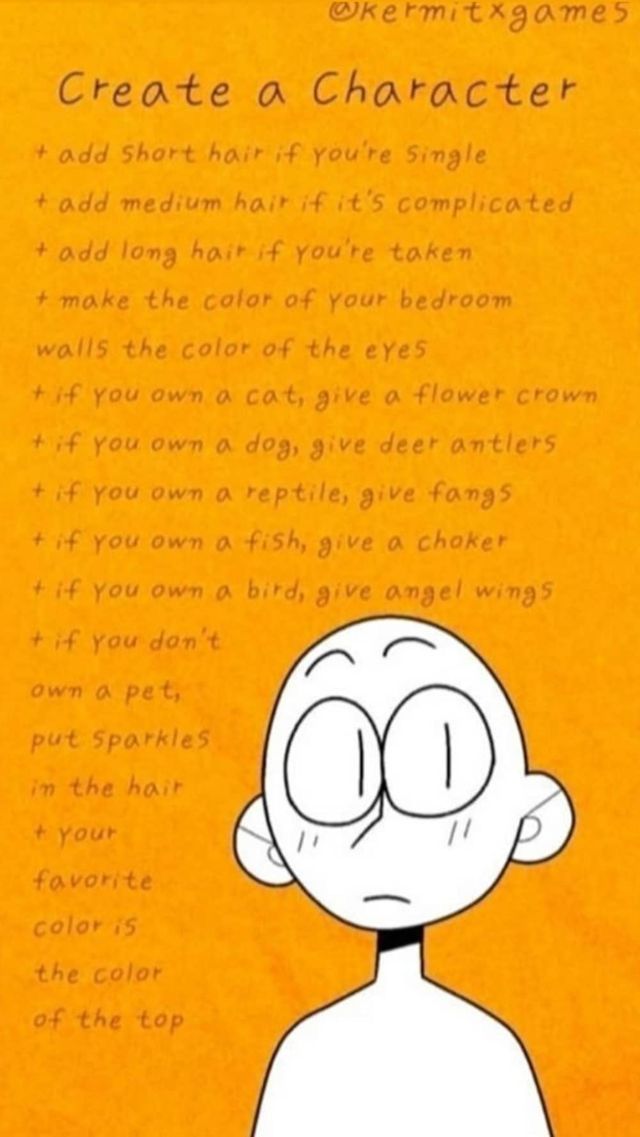 @kermitxgames
Create a Character
+ add short hair if you're single
+ add medium hair if it's complicated
+ add long hair if you're taken
+ make the color of your bedroom
walls the color of the eyes
+ if you own a cat, give a flower crown
+ if you own a dog, give deer antlers
+ if you own a reptile, give fangs
+ if you own a fish, give a choker
+ if you own a bird, give angel wings
+ if you don't
own a pet,
put sparkles
in the hair
+ your
favorite
color is
the color
of the top